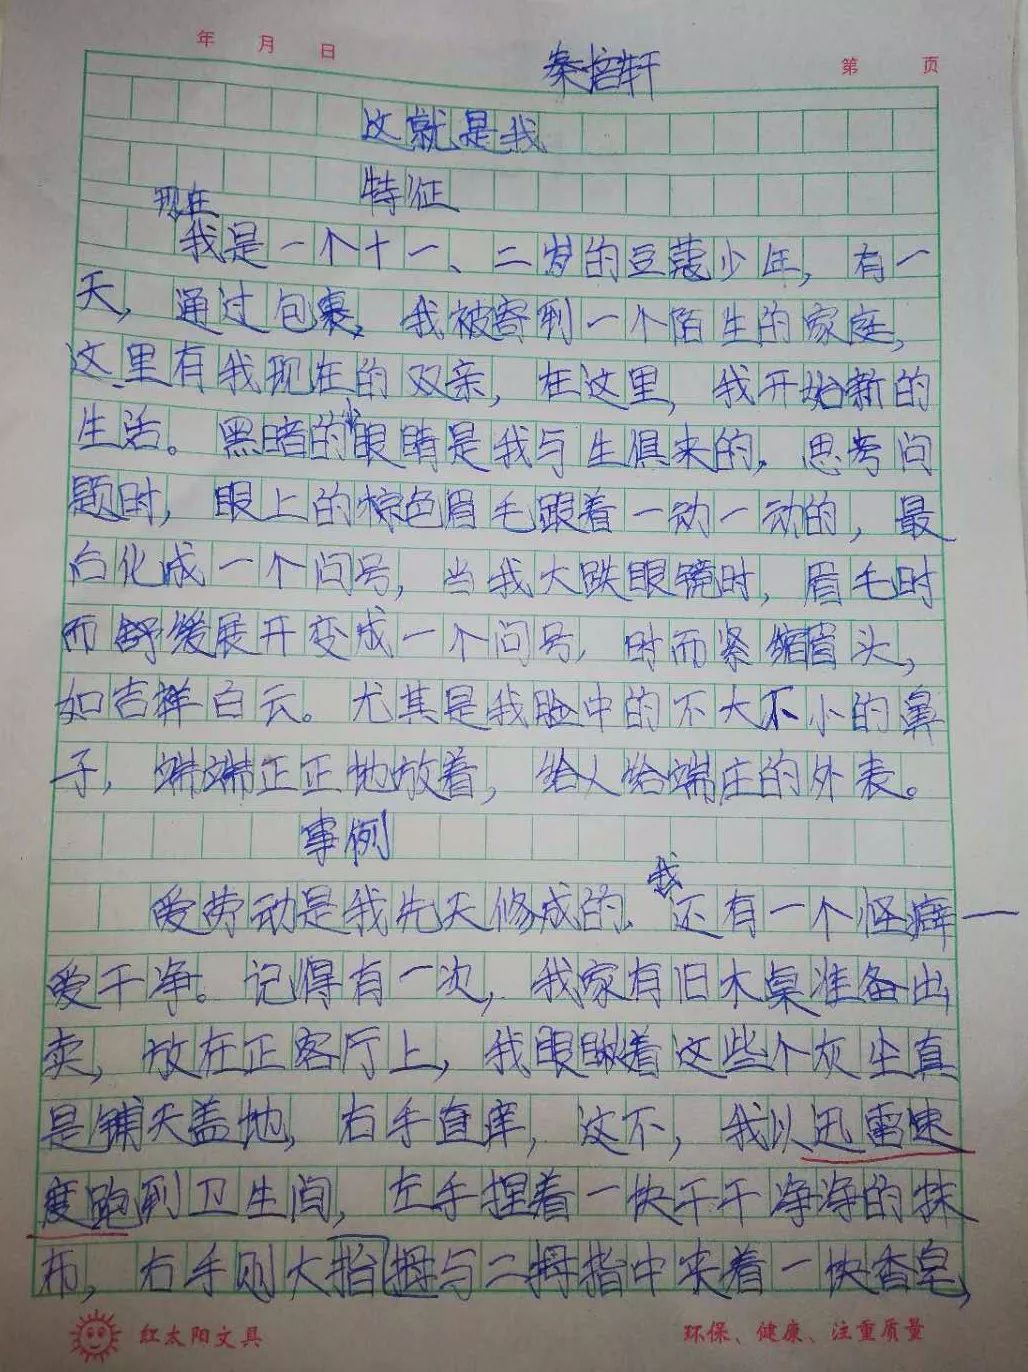 年 月 日
第 页
秦培轩
这就是我
特征
现在
我是一个十一、二岁的豆蔻少年，有一
天，通过包裹，我被寄到一个陌生的家庭，
这里有我现在的双亲，在这里，我开始新的
生活。黑暗的眼睛是我与生俱来的，思考问
题时，眼上的棕色眉毛跟着一动一动的，最
后化成一个问号，当我大跌眼镜时，眉毛时
而舒缓展开变成一个问号，时而紧缩眉头，
如吉祥白云。尤其是我脸中的不大不小的鼻
子，端端正正地放着，给人给端庄的外表。
事例
我
爱劳动是我先天修成的、还有一个怪癖一
爱干净。记得有一次，我家有旧木桌准备出
卖，放在正客厅上，我眼瞅着这些个灰尘真
是铺天盖地，右手直痒，这不，我以迅雷速
度跑到卫生间，左手捏着一快干干净净的抹
布，右手则大抬拇与二拇指中夹着一快香皂，
红太阳文具
环保、健康、注重质量